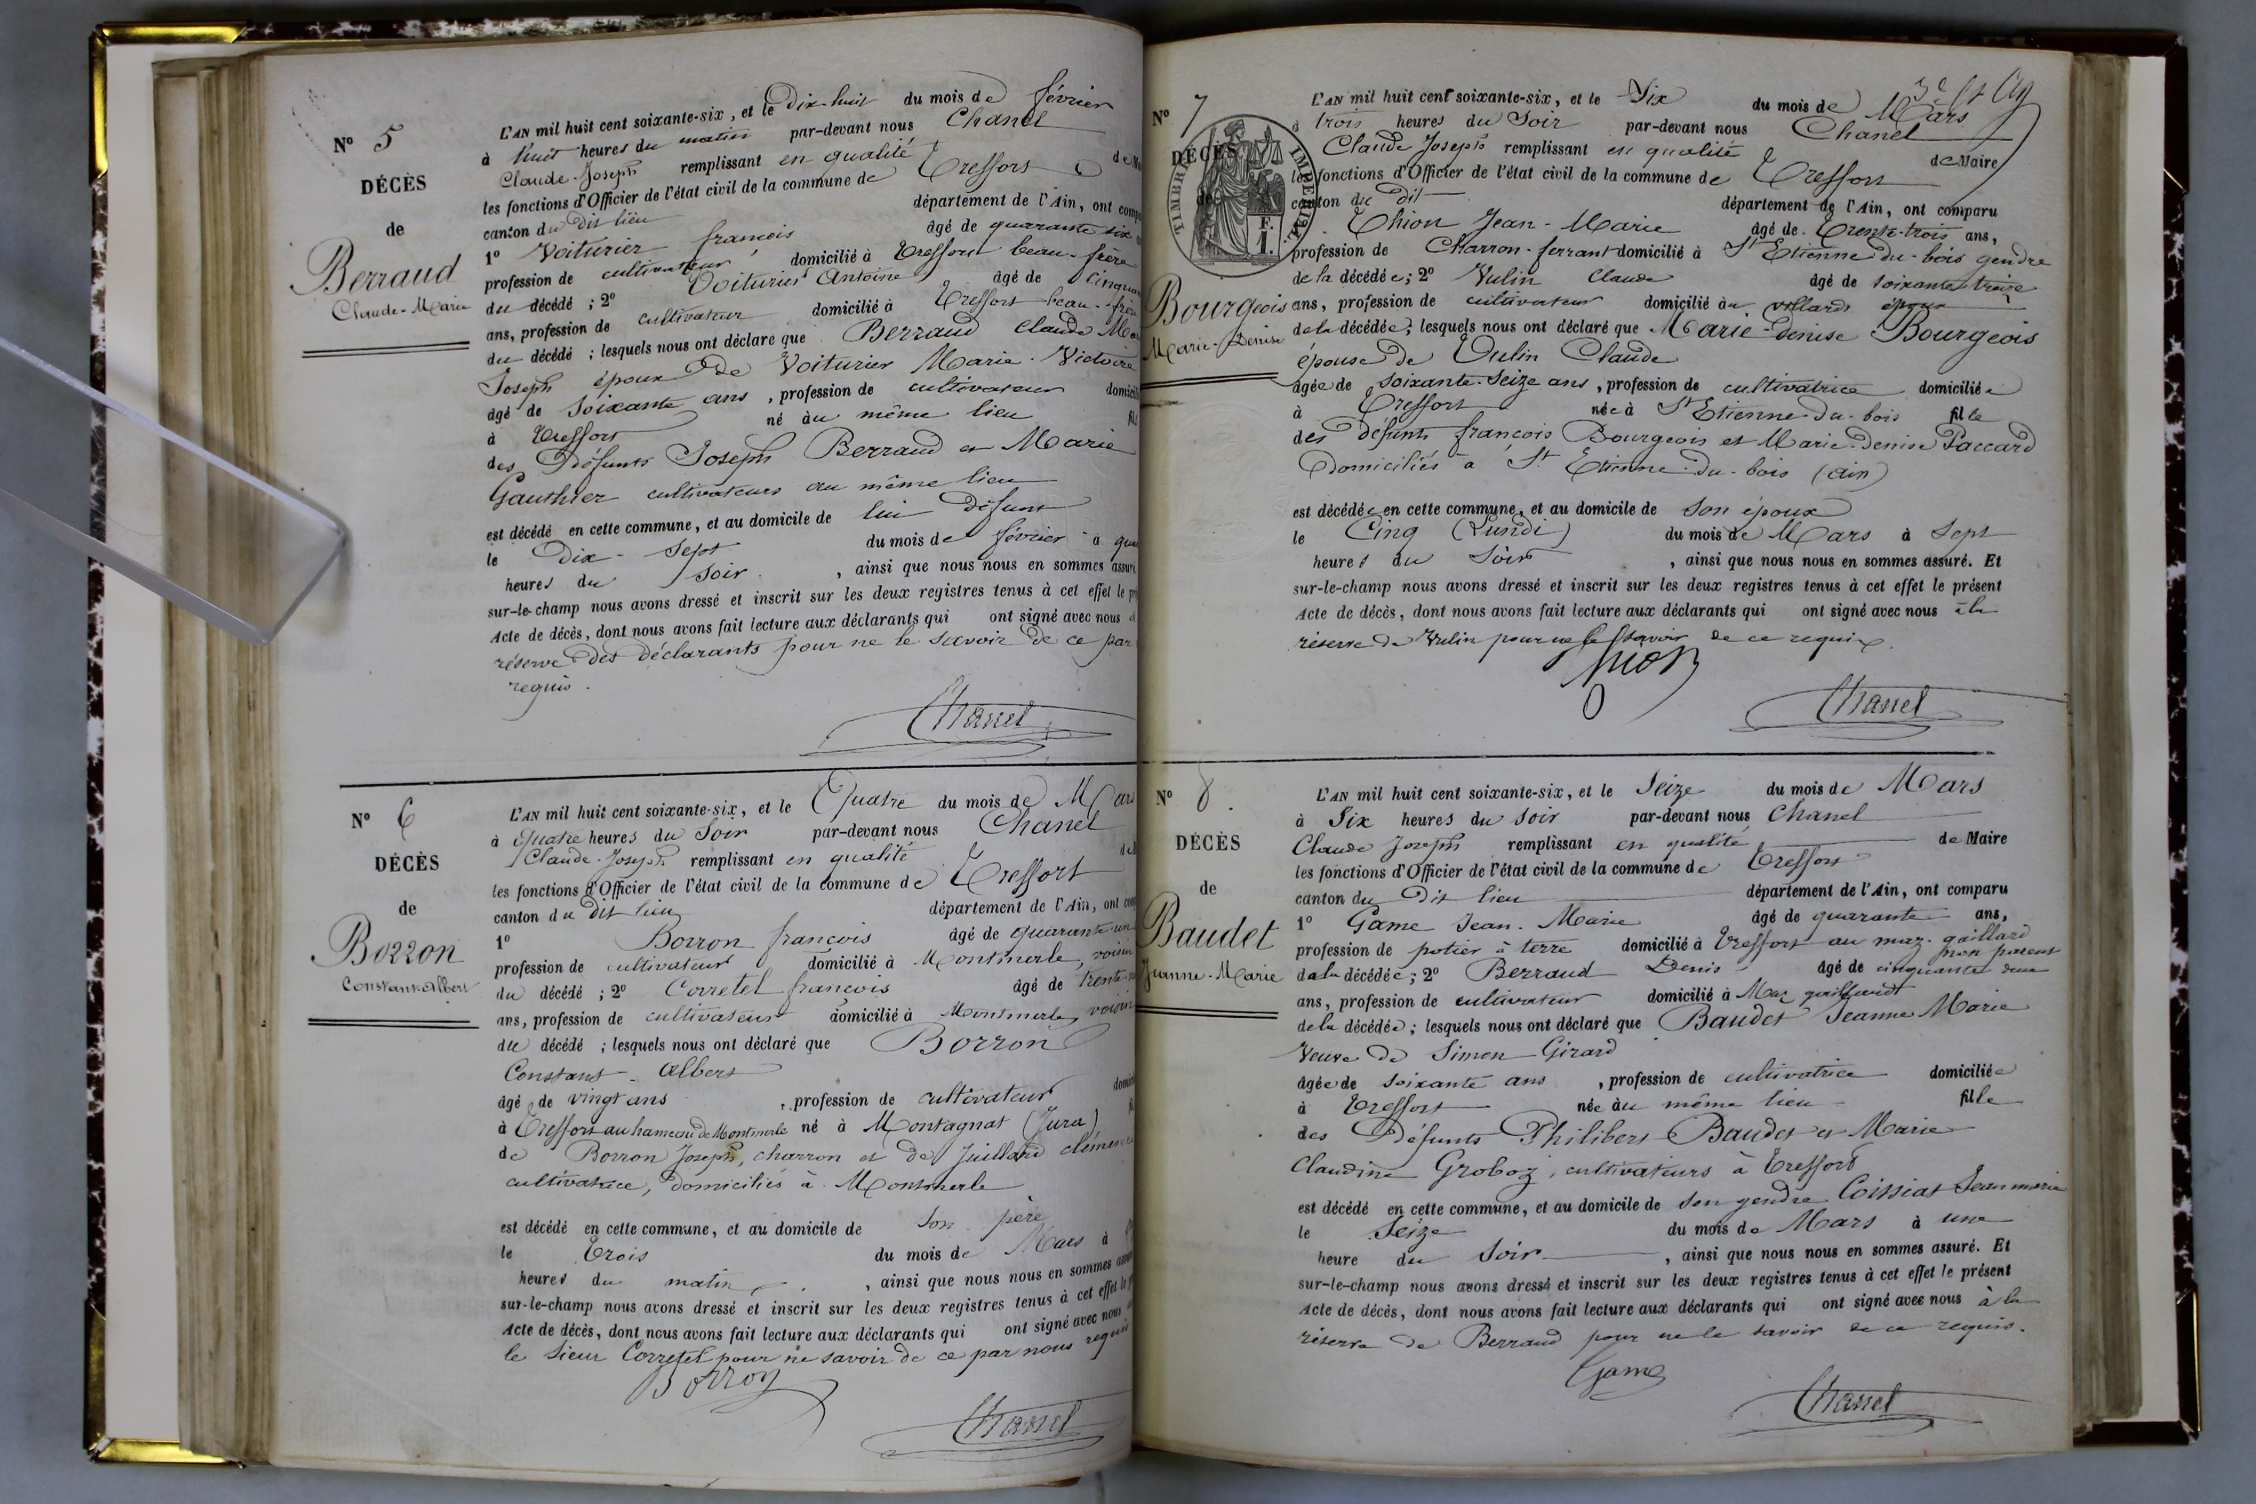 N° 5
DÉCÈS
de
Berraud
Claude-Marie
L'AN mil huit cent soixante-six, et le Dix-huit du mois de février
à huit heures du matin par-devant nous Chanel
Claude-Joseph remplissant en qualité de
les fonctions d'Officier de l'état civil de la commune de Treffort
canton du dit lieu département de l'Ain, ont
1° Voiturier françois âgé de quarante six
profession de cultivateur domicilié à Treffort beau-frère
du décédé ; 2° Voiturier Antoine âgé de
ans, profession de cultivateur domicilié à Treffort beau-frère
du décédé ; lesquels nous ont déclaré que Berraud Claude
Joseph époux de Voiturier Marie-Victoire
âgé de soixante ans, profession de cultivateur
à Treffort né au même lieu
des Défunts Joseph Berraud et Marie
Gauthier cultivateurs au même lieu
est décédé en cette commune, et au domicile de lui défunt
le Dix-Sept du mois de février à
heures du Soir, ainsi que nous nous en sommes
sur-le-champ nous avons dressé et inscrit sur les deux registres tenus à cet effet le
Acte de décès, dont nous avons fait lecture aux déclarants qui ont signé avec nous
réserve des déclarants pour ne le savoir de ce par
requis.
Chanel
N° 6
DÉCÈS
de
Borron
Constant-Albert
L'AN mil huit cent soixante-six, et le Quatre du mois de Mars
à quatre heures du Soir par-devant nous Chanel
Claude-Joseph remplissant en qualité
les fonctions d'Officier de l'état civil de la commune de Treffort
canton du dit lieu département de l'Ain, ont
1° Borron françois âgé de quarante un
profession de cultivateur domicilié à Montmerle, voisin
du décédé ; 2° Corretel françois âgé de trente
ans, profession de cultivateur domicilié à Montmerle, voisin
du décédé ; lesquels nous ont déclaré que Borron
Constant-Albert
âgé de vingt ans, profession de cultivateur
à Treffort au hameau de Montmerle né à Montagnat (Jura)
de Borron Joseph, charron et de Juillard
cultivatrice, domiciliés à Montmerle
est décédé en cette commune, et au domicile de son père
le Trois du mois de Mars à
heures du matin, ainsi que nous nous en sommes
sur-le-champ nous avons dressé et inscrit sur les deux registres tenus à cet effet le
Acte de décès, dont nous avons fait lecture aux déclarants qui ont signé avec nous
le sieur Corretel pour ne savoir de ce par nous requis
Borron
Chanel
N° 7
DÉCÈS
de
TIMBRE IMPERIAL
F.
1.
Bourgeois
Marie-Denise
L'AN mil huit cent soixante-six, et le Six du mois de Mars
à trois heures du Soir par-devant nous Chanel
Claude Joseph remplissant en qualité de Maire
les fonctions d'Officier de l'état civil de la commune de Treffort
canton du dit département de l'Ain, ont comparu
Thion Jean-Marie âgé de Trente-trois ans,
profession de Charron-ferrant domicilié à St Etienne-du-bois gendre
de la décédée; 2° Vulin Claude âgé de soixante treize
ans, profession de cultivateur domicilié au villard époux
de la décédée; lesquels nous ont déclaré que Marie-Denise Bourgeois
épouse de Vulin Claude
âgée de soixante-Seize ans, profession de cultivatrice domiciliée
à Treffort née à St Etienne-du-bois fille
des défunts françois Bourgeois et Marie-Denise Paccard
Domiciliés à St Etienne-du-bois (ain)
est décédée en cette commune, et au domicile de son époux
le Cinq (Lundi) du mois de Mars à Sept
heures du Soir, ainsi que nous nous en sommes assuré. Et
sur-le-champ nous avons dressé et inscrit sur les deux registres tenus à cet effet le présent
Acte de décès, dont nous avons fait lecture aux déclarants qui ont signé avec nous à la
réserve de Vulin pour ne le savoir de ce requis.
Thion
Chanel
N° 8.
DÉCÈS
de
Baudet
Jeanne-Marie
L'AN mil huit cent soixante-six, et le Seize du mois de Mars
à Six heures du soir par-devant nous Chanel
Claude Joseph remplissant en qualité de Maire
les fonctions d'Officier de l'état civil de la commune de Treffort
canton du Dit lieu département de l'Ain, ont comparu
1° Game Jean-Marie âgé de quarante ans,
profession de potier à terre domicilié à Treffort au maz-gaillard non parent
de la décédée; 2° Berraud Denis âgé de cinquante deux
ans, profession de cultivateur domicilié à Maz gaillard
de la décédée; lesquels nous ont déclaré que Baudet Jeanne Marie
Veuve de Simon Girard
âgée de soixante ans, profession de cultivatrice domiciliée
à Treffort née au même lieu fille
des Défunts Philibert Baudet et Marie
Claudine Groboz, cultivateurs à Treffort
est décédé en cette commune, et au domicile de son gendre Coissiat Jean marie
le Seize du mois de Mars à une
heure du Soir, ainsi que nous nous en sommes assuré. Et
sur-le-champ nous avons dressé et inscrit sur les deux registres tenus à cet effet le présent
Acte de décès, dont nous avons fait lecture aux déclarants qui ont signé avec nous à la
réserve de Berraud pour ne le savoir de ce requis.
Game
Chanel